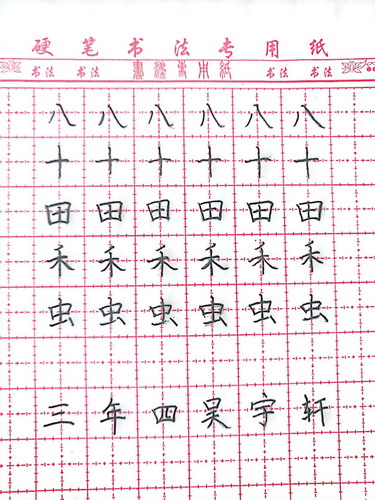 硬笔书法专用纸
书法 書法專用紙 书法 书法
八八八八八八
十十十十十十
田田田田田田
禾禾禾禾禾禾
虫虫虫虫虫虫
三年四吴宇轩